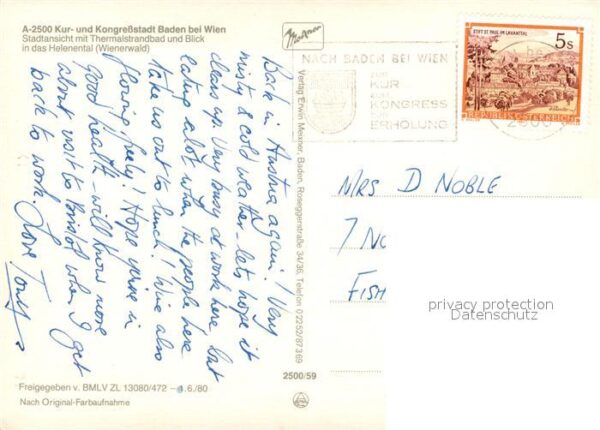 A-2500 Kur- und Kongreßstadt Baden bei Wien
Stadtansicht mit Thermalstrandbad und Blick
in das Helenental (Wienerwald)
Back in Austria again! Very
misty & cold weather - let's hope it
clears up. Very busy at work here but
eating alot when the people here
take us out to lunch! Wine also
flowing freely! Hope you're in
good health - will know more
about visit to Bristol when I get
back to work. Love Tony
Freigegeben v. BMLV ZL 13080/472 – 1.6./80
Nach Original-Farbaufnahme
2500/59
Verlag Erwin Meixner, Baden, Roseggerstraße 34/36, Telefon 02252/87369
Meixner
NACH BADEN BEI WIEN
ZUR
KUR
ZUM
KONGRESS
ZUR
ERHOLUNG
STIFT ST. PAUL IM LAVANTTAL
5s
REPUBLIK ÖSTERREICH
MRS D NOBLE
7 NO
FISH
privacy protection
Datenschutz